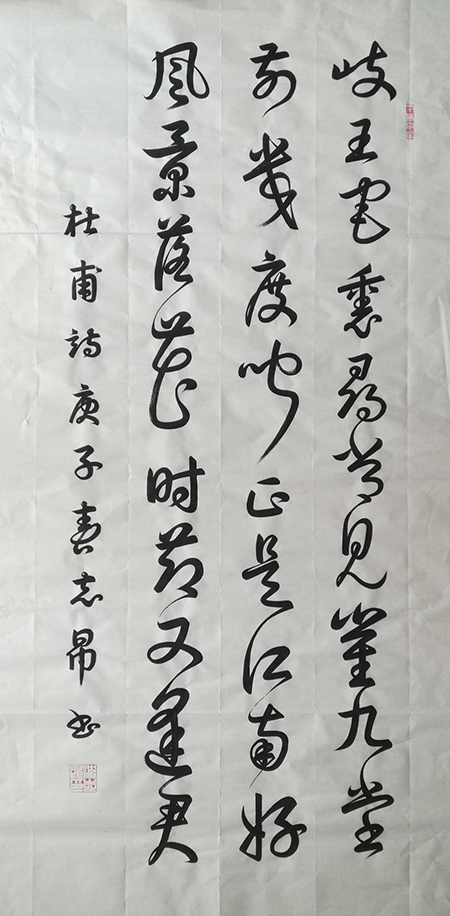 岐王宅裏尋常見崔九堂
前幾度聞正是江南好
風景落花时节又逢君
杜甫詩庚子春志帛书